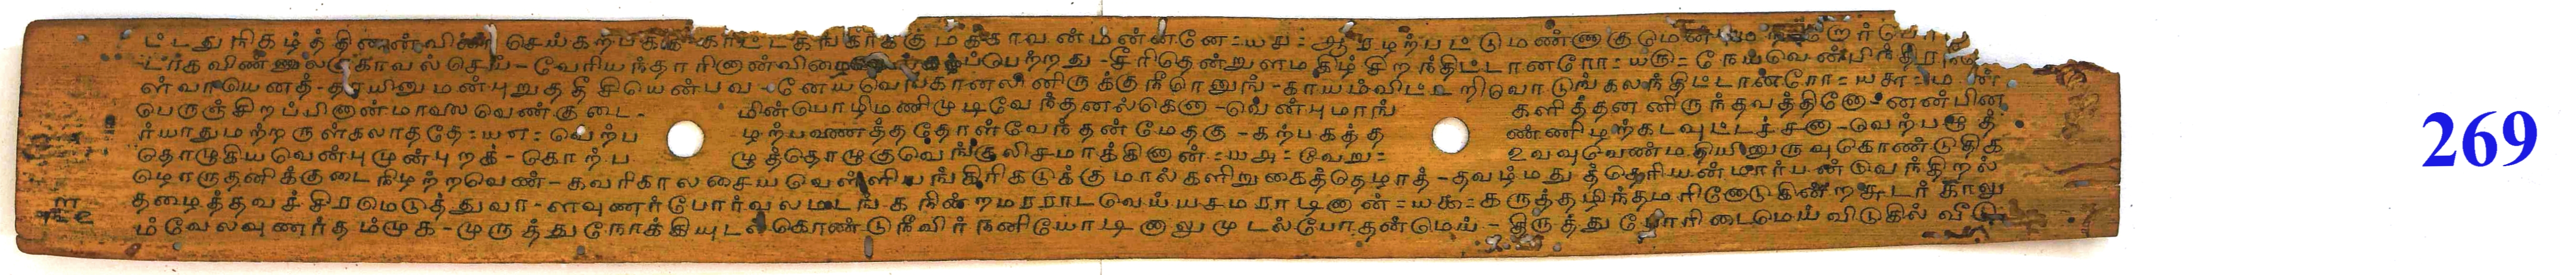 ட்டதுநிகழ்த்தினான்விண் செய்கற்பகக் காட்டகங்கார்க்கும் மகவான் மன்னனே=யரு=ஆரழற்பட்டுமண்ணாகுமென்
டர்கவிண்ணுலகுகாவல்செய்-வேரியந்தாரினான்விழை ப்பெற்றது-சீரிதென்றுளமகிழ்சிறந்திட்டானரோ=யரு=நேயவெண்பிந்திர
ள்வாயெனத்-தாயினுமன்புறுததீசியென்பவ-னேயவெங்கானலினிருக்குநீரொனுங்-காயம்விட்டறிவொடுங்கலந்திட்டானரோ=யசா=ம
பெருஞ்சிறப்பினான்மாலவெண்குடை- மின்பொழிமணிமுடிவேந்தனல்கென-வென்புமாங் களித்தனனிருந்தவத்தினோ=னன்பின
ர்யாதுமற்றருள்கலாததே=யஎ=வெற்ப ழற்பவணத்ததோள்வேந்தன்மேதகு-கற்பகத்த ண்ணிழற்கடவுட்டச்சனா-வெற்பழூத்
தொழுகியவென்புமுன்புறக்-கொற்ப ழூத்தொழுகுவெங்குலிசமாக்கினான்=யஅ=வேறு= உவவுவெண்மதியினுருவுகொண்டுதிக
ழொருதனிக்குடைநிழற்றவெண்-கவரிகாலசையவெள்ளியங்கிரிகடுக்குமால்களிறுகைத்தெழாத்-தவழ்மதுத்தெரியன்மார்பன்வந்திறல்
தழைத்தவச்சிரமெடுத்துவா-ளவுணர்போர்வலமடங்-கநின்றமரராடவெய்யசமராடினான்=யகூ=கருத்தழிந்தமரினோடுகின்றசுடர்காலு
ம்வேலவுணர்தம்முக-முருத்துநோக்கியுடல்கொண்டுநீவிர்நனியோடினாலுமுடல்போதன்மெய்-திருத்துபோரிடைமெய்விடுகில்வீடு
269